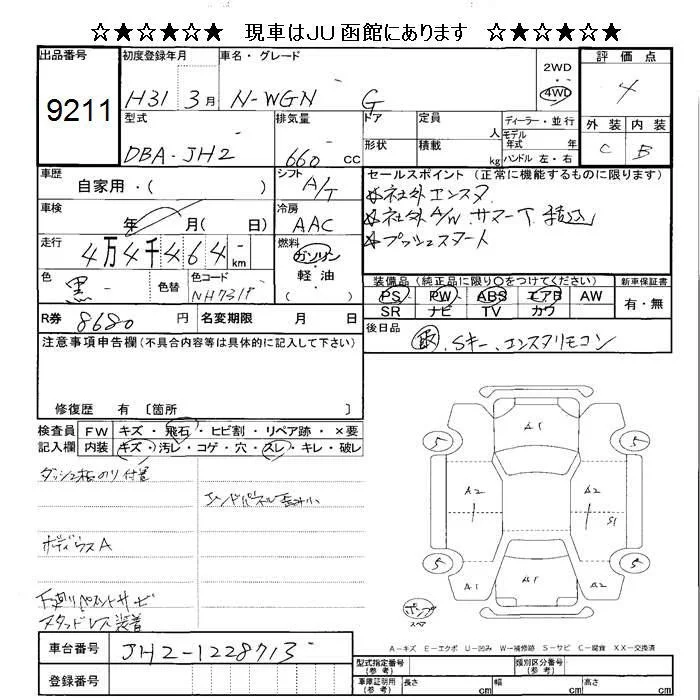 ☆★☆★☆★ 現車はJU函館にあります ☆★☆★☆★
出品番号 初度登録年月 車名・グレード 2WD 評価点
9211 H31 3月 N-WGN G 4WD 4
型式 排気量 ドア 定員 人 ディーラー・並行 外装 内装
DBA-JH2 660cc 形状 積載 kg モデル年式 年 ハンドル 左・右 C B
車歴 自家用・( ) シフト A/T セールスポイント (正常に機能するものに限ります)
☆社外エンスタ
車検 年 月( 日) 冷房 AAC ☆社外A/W サマーT 積込
☆プッシュスタート
走行 4万4千464km 燃料 ガソリン 軽油 ( )
色 黒 色替 色コード NH731P
装備品 (純正品に限り○をつけてください) 新車保証書
PS・PW・ABS・エアB・AW 有・無
SR・ナビ・TV・カワ
R券 8680円 名変期限 月 日
後日品 取、Sキー、エンスタリモコン
注意事項申告欄 (不具合内容等は具体的に記入して下さい)
修復歴 有 〔箇所
検査員 FW キズ・飛石・ヒビ割・リペア跡・×要
記入欄 内装 キズ・汚レ・コゲ・穴・スレ・キレ・破レ
ダッシュ板のり付着
エンドパネル歪み小
ボディウスA
下廻りペイントサビ
スタッドレス装着
A1
5 5
A2 A2
S1
5 5
A1 A1 A2
A-キズ E-エクボ U-凹み W-補修跡 S-サビ C-腐食 XX-交換済
車台番号 JH2-1228713
型式指定番号 (参考) 類別区分番号 (参考)
車庫証明用 (参考) 長さ cm 幅 cm 高さ cm